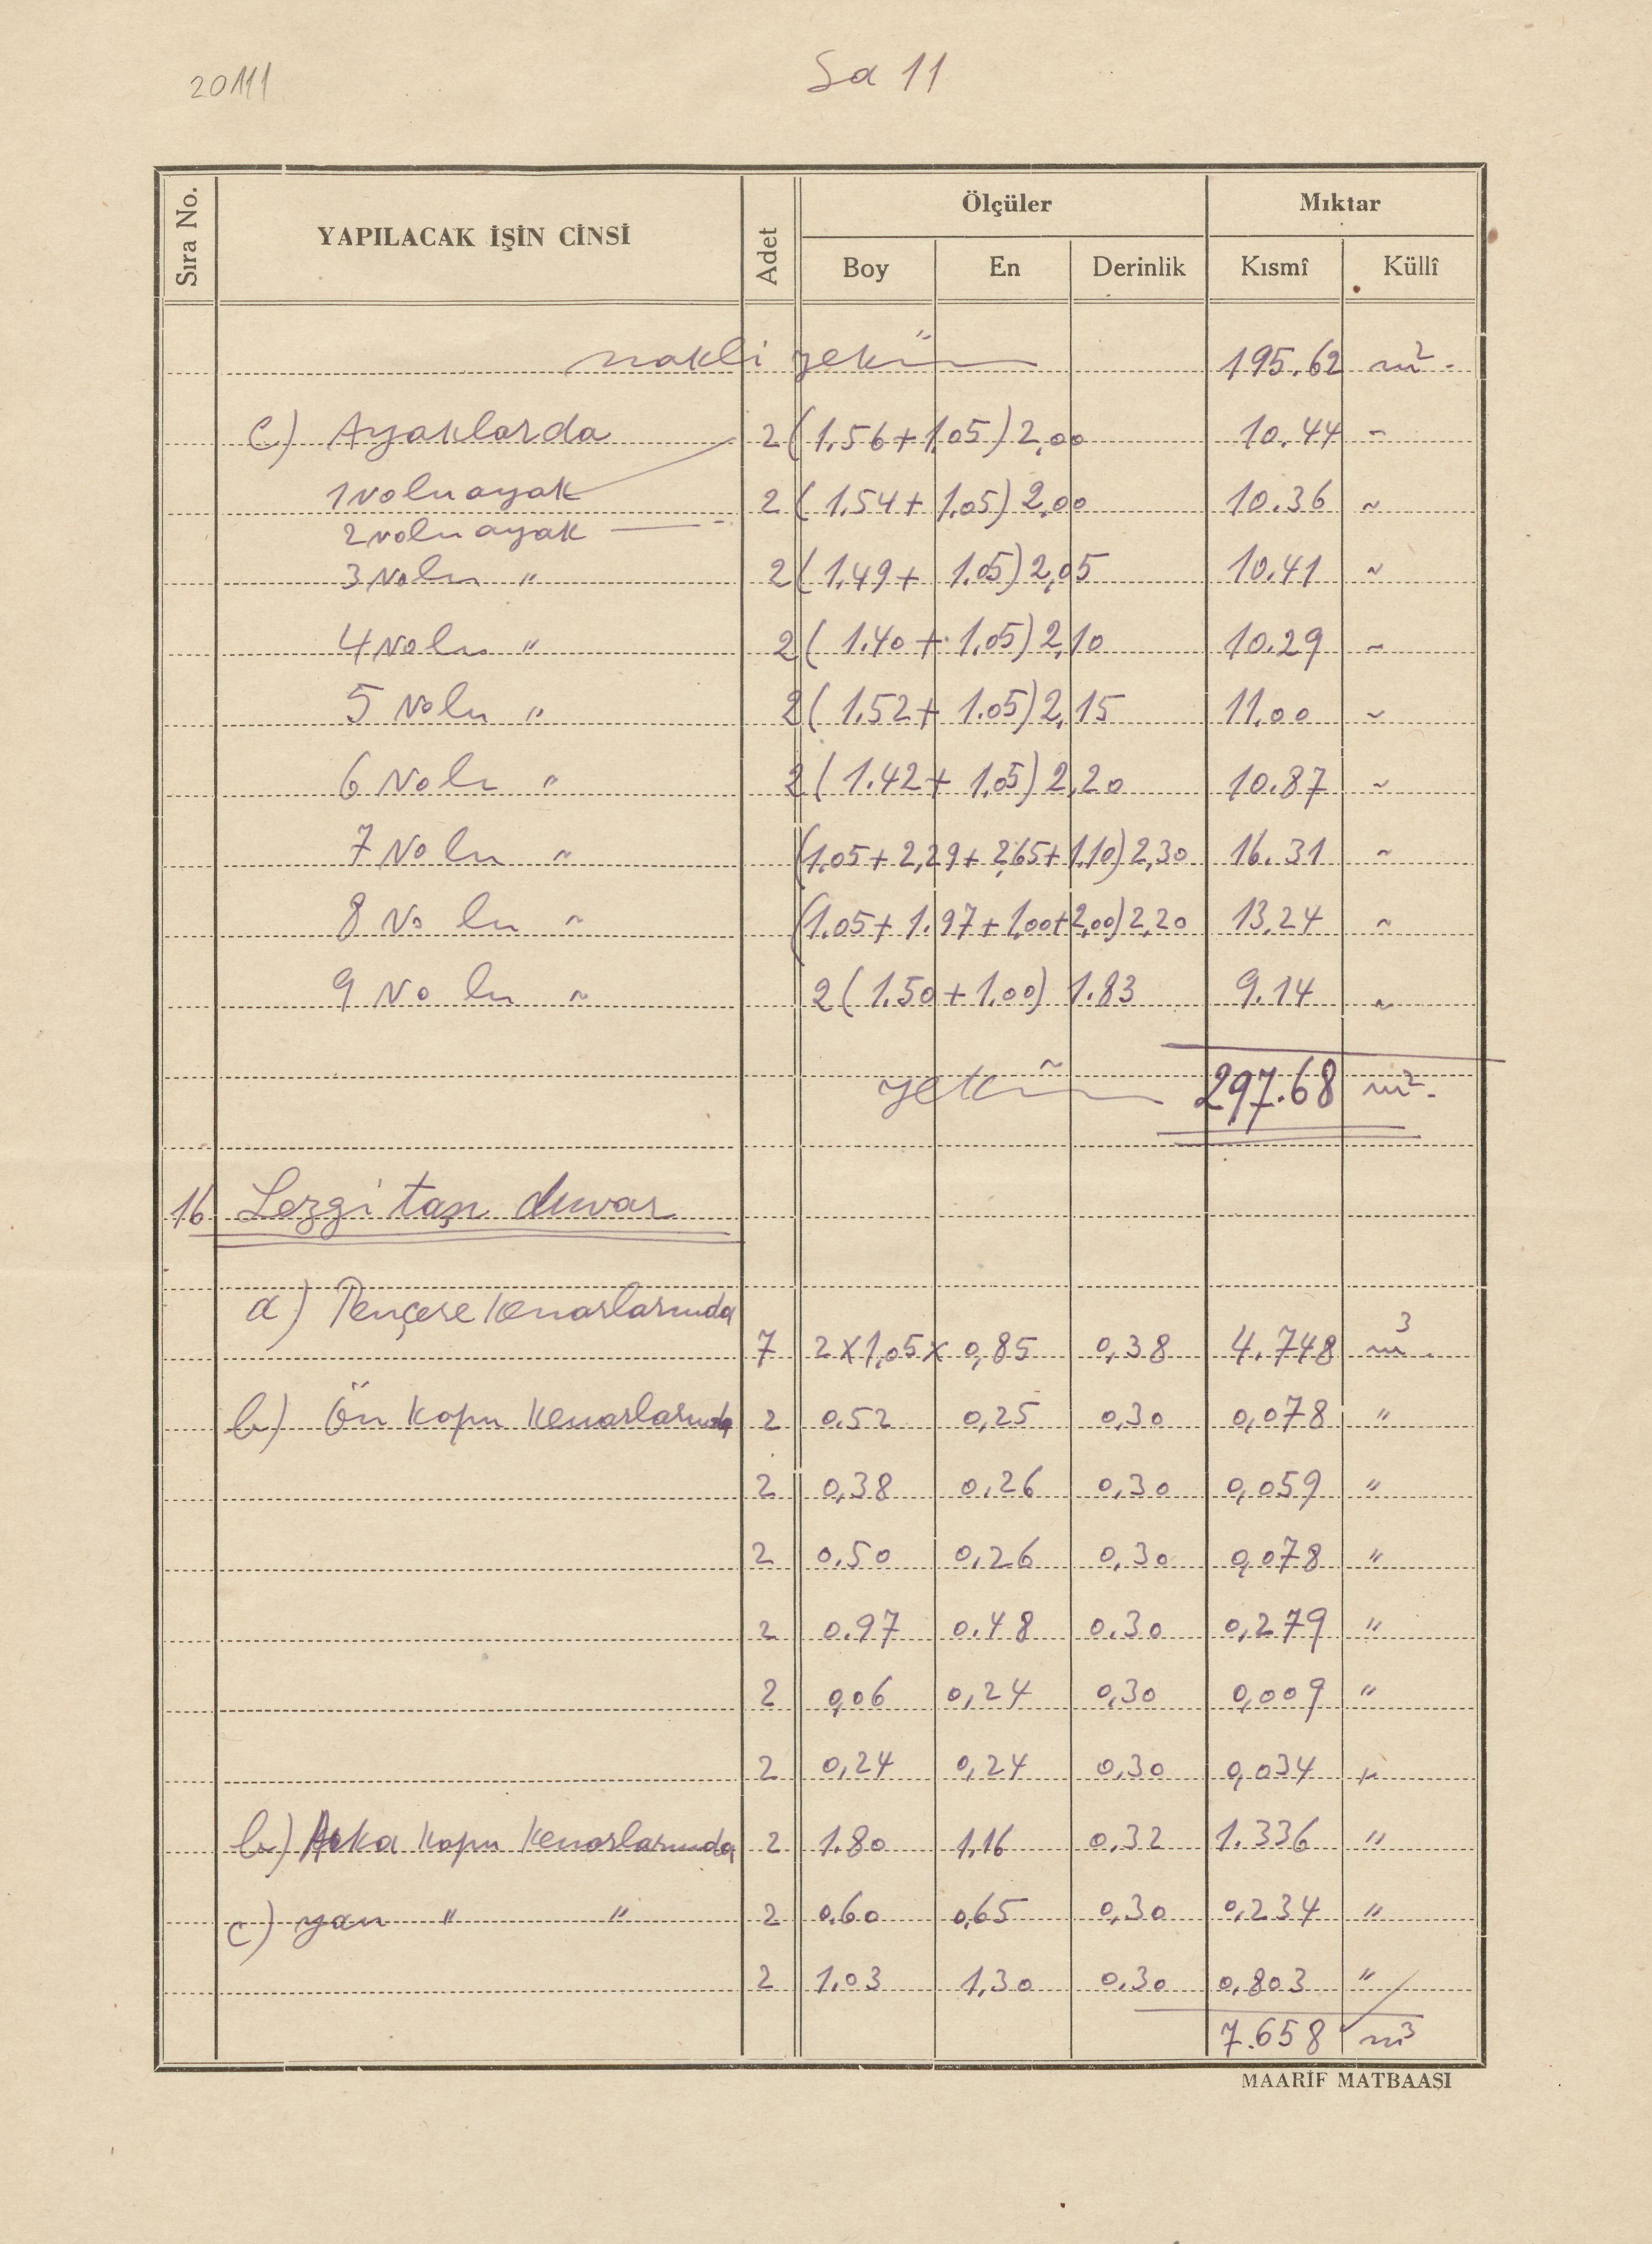 20111
Sa 11
Sıra No.
YAPILACAK İŞİN CİNSİ
Adet
Ölçüler
Mıktar
Boy En Derinlik Kısmî Küllî
nakli yekûn 195.62 m2.
C) Ayaklarda 2 (1.56+1.05) 2,00 10.44 ~
1 Nolu ayak
2 (1.54+1.05) 2,00 10.36 ~
2 nolu ayak
3 Nolu " 2 (1.49+1.05) 2,05 10.41 ~
4 Nolu " 2 (1.40+1.05) 2,10 10.29 ~
5 Nolu " 2 (1.52+1.05) 2,15 11.00 ~
6 Nolu " 2 (1.42+1.05) 2,20 10.87 ~
7 Nolu ~ (1.05+2,29+2,65+1,10) 2,30 16.31 ~
8 Nolu ~ (1.05+1.97+1,00+2,00) 2,20 13.24 ~
9 Nolu ~ 2 (1.50+1.00) 1.83 9.14 ~
yekûn 297.68 m2.
16 Lezgi taşı duvar
a) Pençere kenarlarında
7 2x1,05x 0,85 0,38 4.748 m3.
b) Ön kapu kenarlarında 2 0.52 0,25 0,30 0,078 "
2 0,38 0,26 0,30 0,059 "
2 0.50 0,26 0,30 0,078 "
2 0.97 0.48 0.30 0,279 "
2 0,06 0,24 0,30 0,009 "
2 0,24 0,24 0,30 0,034 "
b) Arka kapu kenarlarında 2 1.80 1,16 0,32 1.336 "
c) yan " " 2 0.60 0,65 0,30 0,234 "
2 1.03 1,30 0.30 0.803 "
7.658 m3
MAARİF MATBAASI